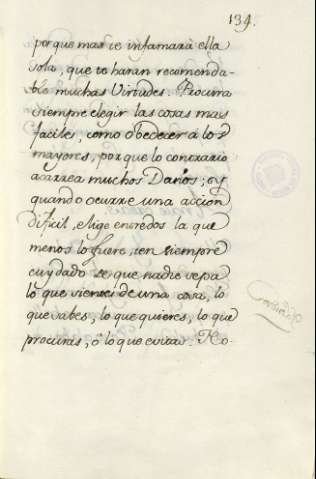 134.
porque mas te infamarà ella
sola, que te haran recomenda-
ble muchas Virtudes. Procura
siempre elegir las cosas mas
faciles, como obedecer à los
mayores, porque lo contrario
acarrea muchos Daños; y
quando ocurre una accion
dificil, elige entre dos la que
menos lo fuere, ten siempre
cuydado de que nadie sepa
lo que sientes de una cosa, lo
que sabes, lo que quieres, lo que
procuras, ò lo que evitas. No-